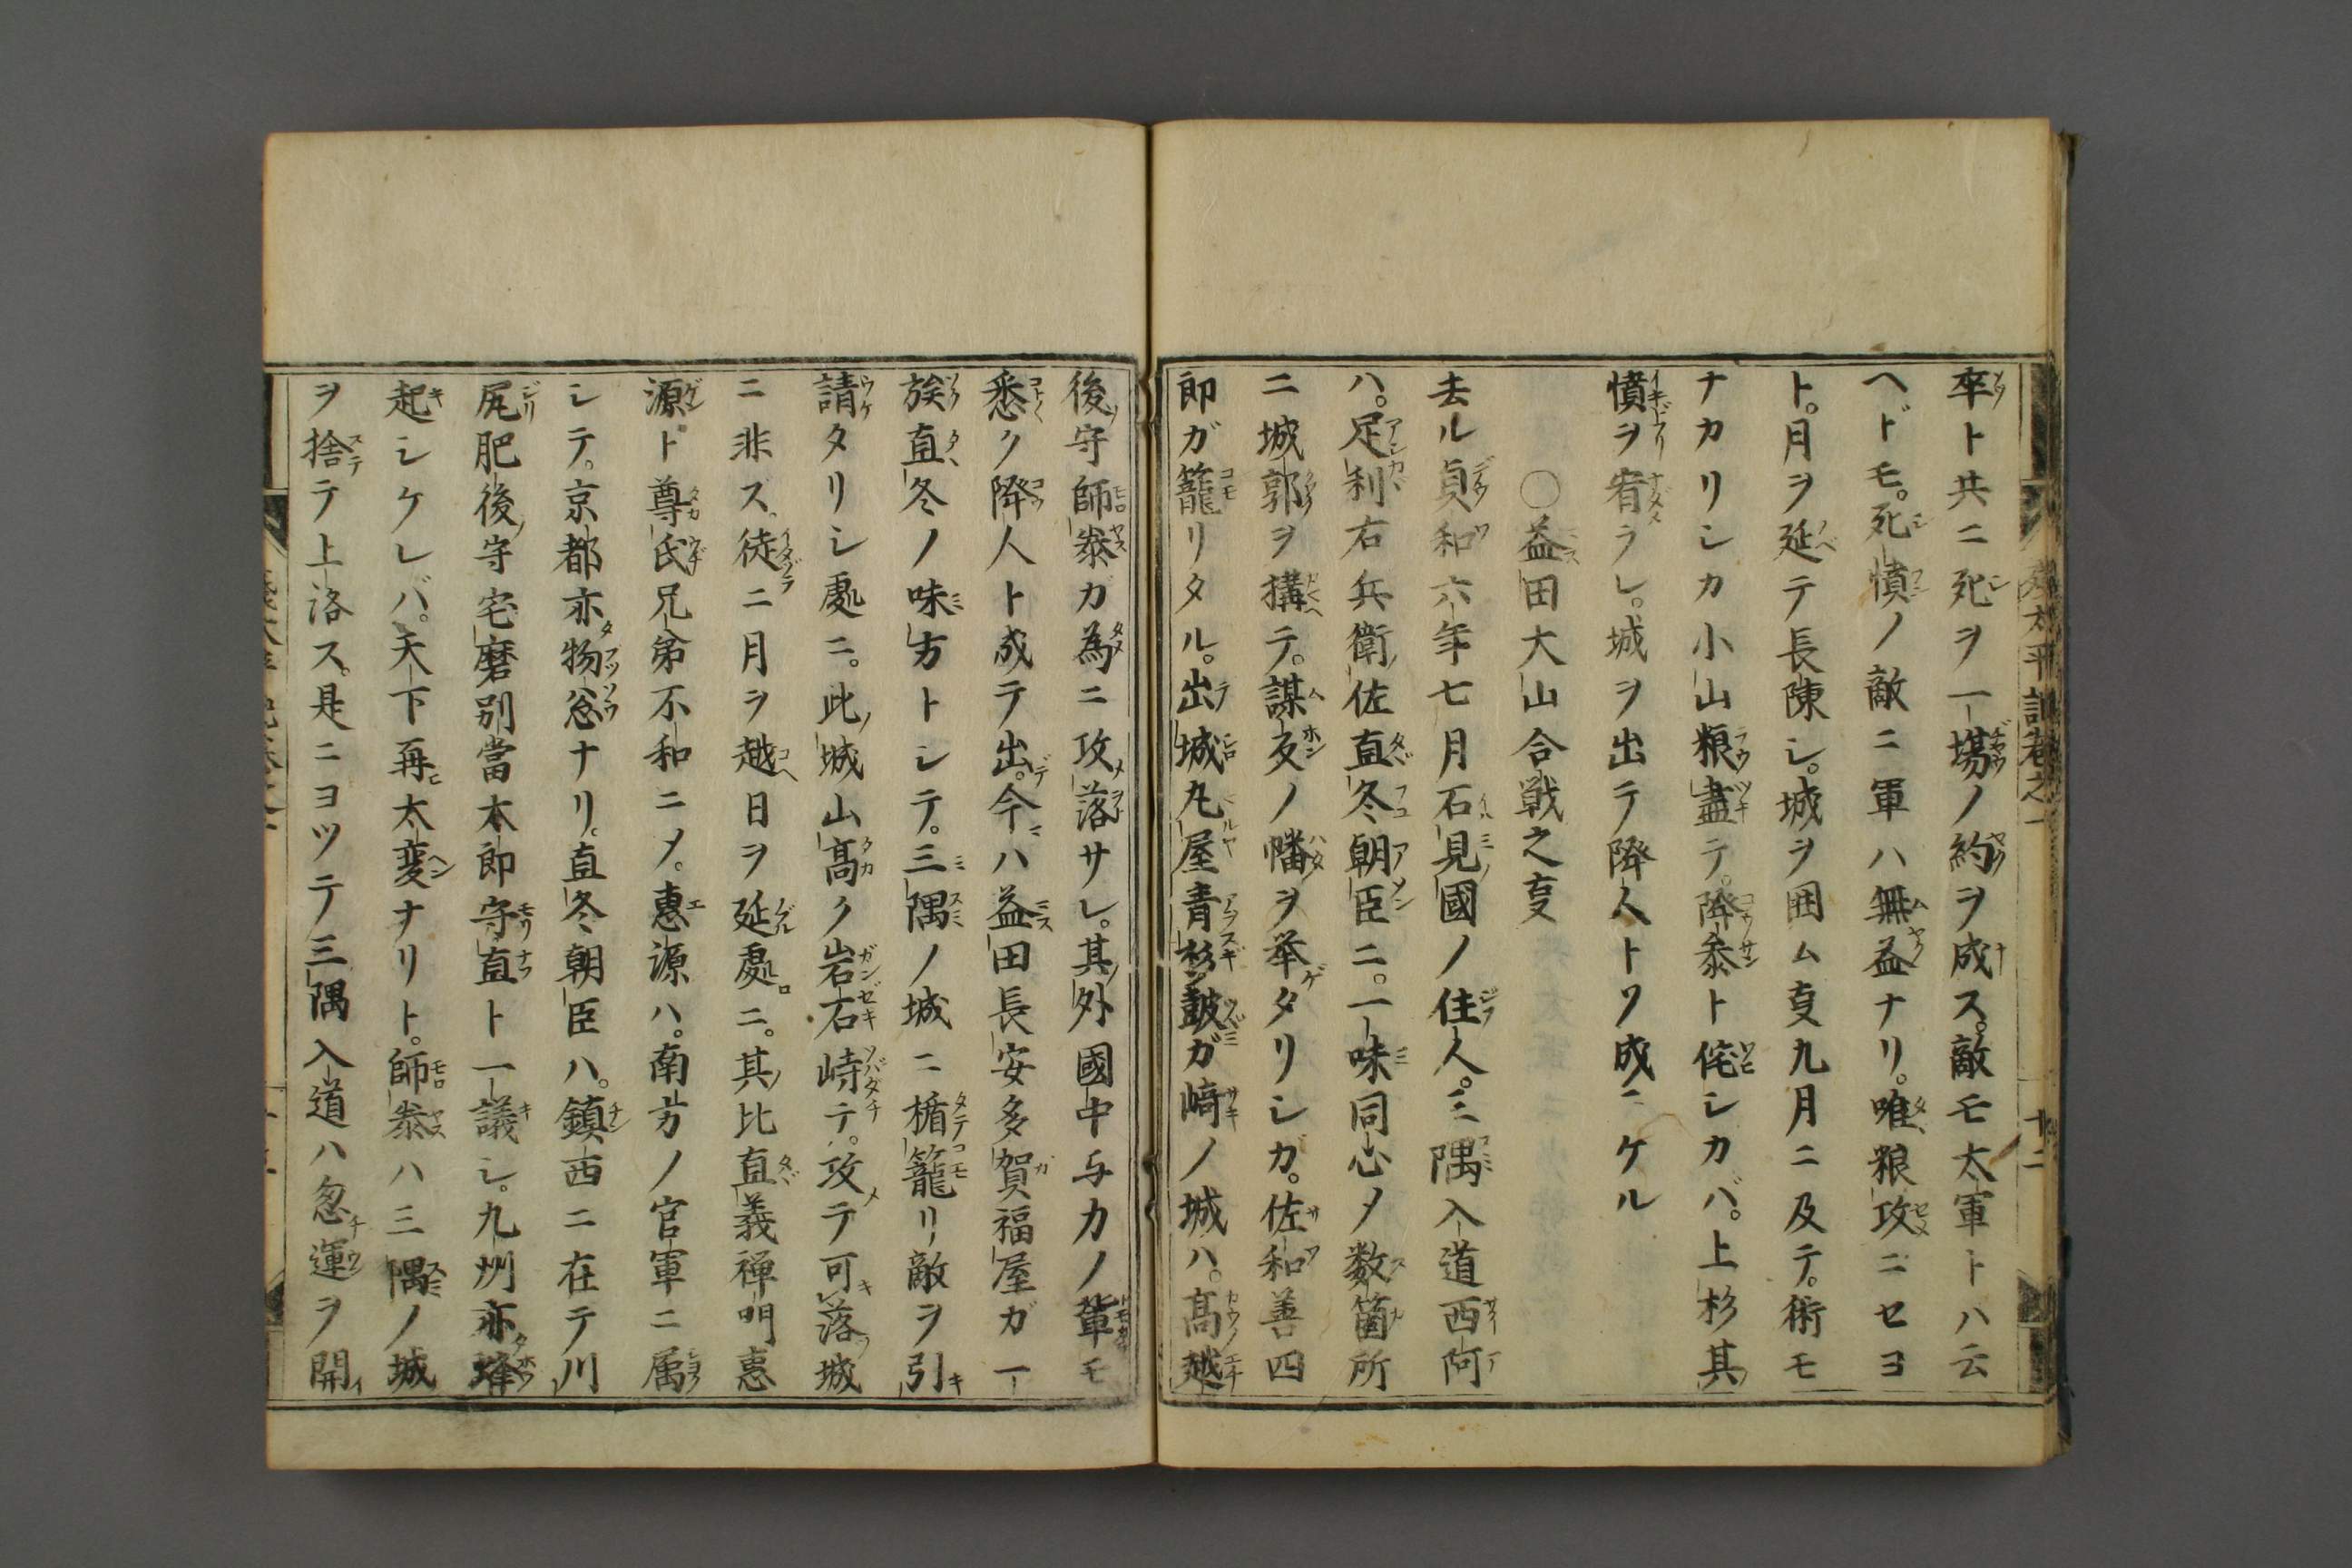 卒ト共ニ死ヲ一場ノ約ヲ成ス。敵モ太軍トハ云
ヘドモ。死憤ノ敵ニ軍ハ無益ナリ。唯粮攻ニセヨ
ト。月ヲ延テ長陳シ。城ヲ囲ム㕝九月ニ及テ。術モ
ナカリシカ小山粮盡テ。降叅ト侘シカバ。上杉其
憤ヲ宥ラレ。城ヲ出テ降人トソ成ニケル
〇益田大山合戦之㕝
去ル貞和六年七月石見國ノ住人。三隅入道西阿
ハ。足利右兵衛佐直冬朝臣ニ。一味同心〆数箇所
ニ城郭ヲ搆テ。謀反ノ幡ヲ挙タリシガ。佐和善四
郎ガ籠リタル。出城丸屋青杉皷ガ﨑ノ城ハ。髙越
後守師泰ガ為ニ攻落サレ。其外國中与力ノ輩モ
悉ク降人ト成テ出。今ハ益田長安多賀福屋ガ一
族直冬ノ味方トシテ。三隅ノ城ニ楯籠リ敵ヲ引
請タリシ處ニ。此城山髙ク岩石峙テ。攻テ可落城
ニ非ズ。徒ニ月ヲ越日ヲ延處ニ。其比直義禅門惠
源ト尊氏兄弟不和ニ〆。惠源ハ。南方ノ官軍ニ属
シテ。京都亦物忩ナリ。直冬朝臣ハ。鎮西ニ在テ川
尻肥後守宅磨別當太郎守直ト一議シ。九州亦蜂
起シケレバ。天下再太変ナリト。師泰ハ三隅ノ城
ヲ捨テ上洛ス。是ニヨツテ三隅入道ハ忽運ヲ開